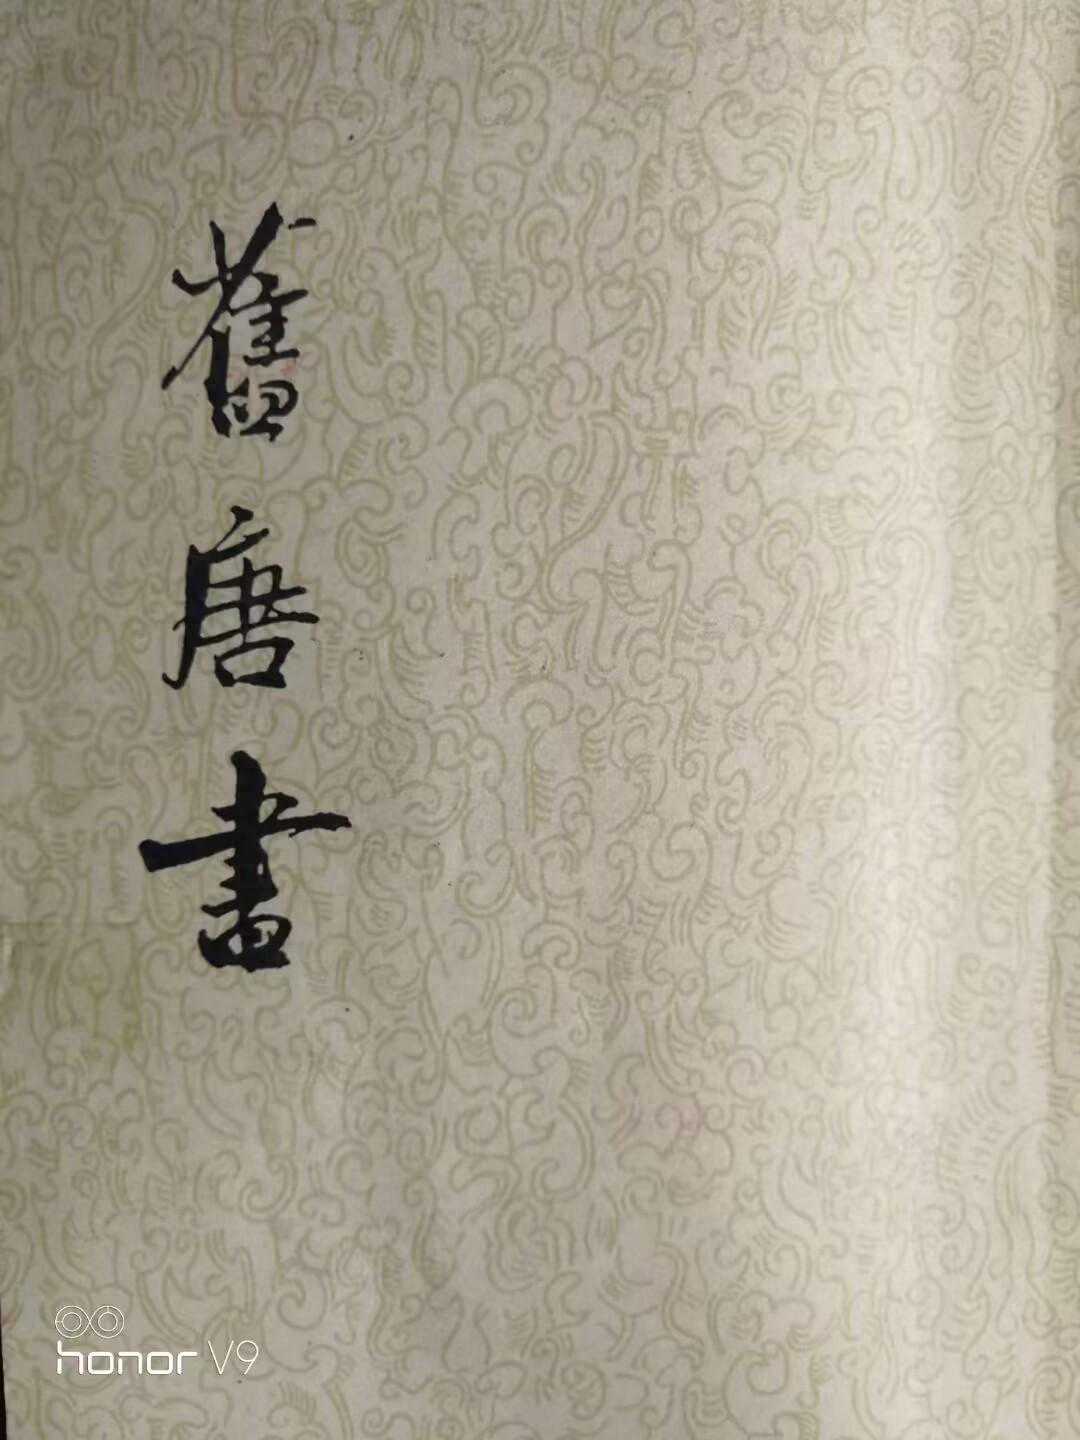 舊唐書
honor V9